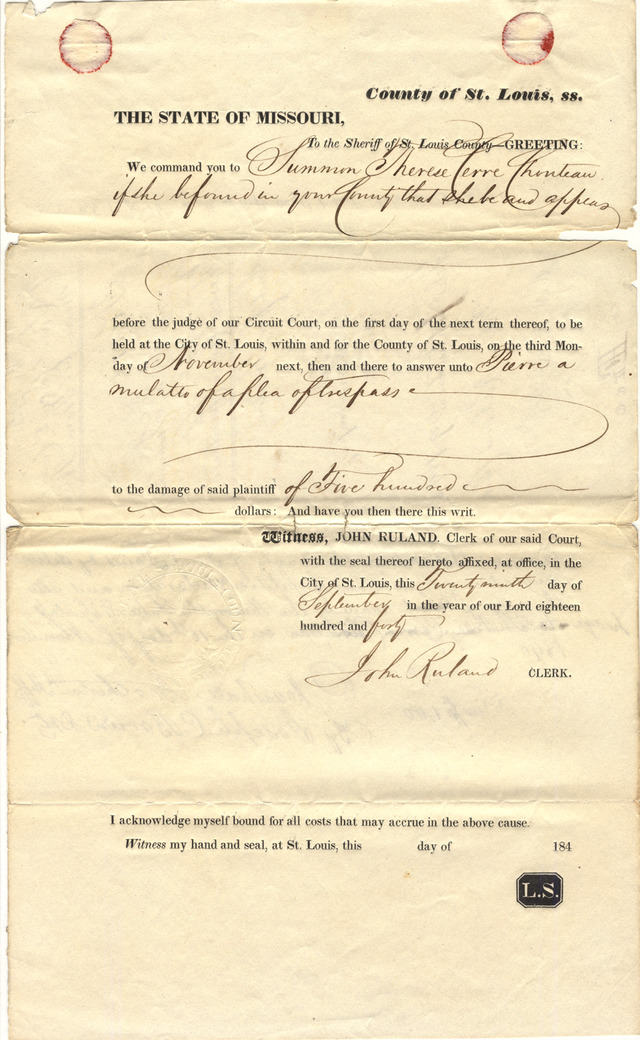 County of St. Louis, ss.
THE STATE OF MISSOURI,
To the Sheriff of St. Louis County—GREETING:
We command you to Summon Therese Cerre Chouteau
if she be found in your County that she be and appear
before the judge of our Circuit Court, on the first day of the next term thereof, to be
held at the City of St. Louis, within and for the County of St. Louis, on the third Mon-
day of November next, then and there to answer unto Pierre a
mulatto of a plea of trespass
to the damage of said plaintiff of Five hundred
dollars: And have you then there this writ.
Witness, JOHN RULAND. Clerk of our said Court,
with the seal thereof hereto affixed, at office, in the
City of St. Louis, this Twenty ninth day of
September in the year of our Lord eighteen
hundred and forty
John Ruland CLERK.
I acknowledge myself bound for all costs that may accrue in the above cause.
Witness my hand and seal, at St. Louis, this day of 184
L.S.